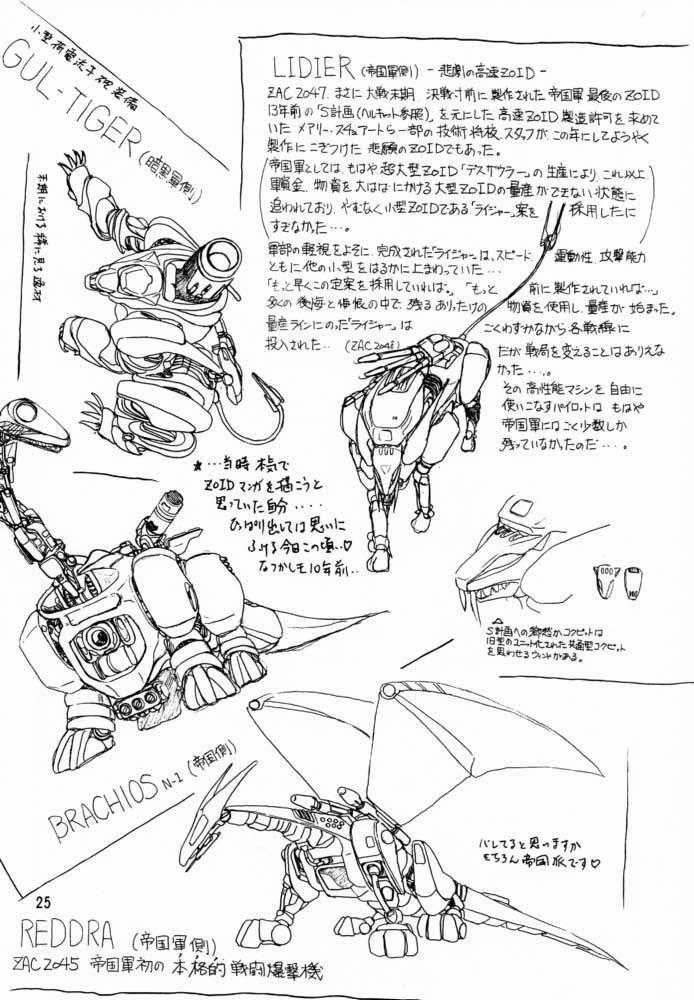 小型荷電流子砲装備
GUL-TIGER (暗黒軍側)
LIDIER (帝国軍側) - 悲劇の高速ZOID -
ZAC 2047. まさに大戦末期 決戦寸前に製作された帝国軍最後のZOID
13年前の「S計画(ヘルキャット参照)」を元にした高速ZOID製造許可を求めて
いたメアリー.スチュアートら一部の技術将校.スタッフが、この年にしてようやく
製作にこぎつけた 悲願のZOIDでもあった。
帝国軍としては、もはや超大型ZOID「デスザウラー」の生産により、これ以上
軍資金、物資を大はばにかける大型ZOIDの量産ができない状態に
追われており、やむなく小型ZOIDである「ライジャー」案を 採用したに
すぎなかった…。
軍部の軽視をよそに、完成された「ライジャー」は、スピード 運動性 攻撃能力
ともに他の小型をはるかに上まわっていた…
「もっと早くこの定案を採用していれば。」「もっと 前に製作されていれば…」
多くの後悔と悔恨の中で、残るありったけの 物資を使用し、量産が始まった。
量産ラインにのった「ライジャー」は ごくわずかながら各戦線に
投入された.. (ZAC 2048)
だが戦局を変えることはありえな
かった…。
その高性能マシンを自由に
使いこなすパイロットは もはや
帝国軍にはごく少数しか
残っていなかったのだ…。
★…当時 本気で
ZOIDマンガを描こうと
思っていた自分....
ひっぱり出しては思いに
ふける今日この頃..♡
なつかしも10年前..
S計画への コクピットは
旧型のユニット化された共通型コクピット
を思わせるウィンドがある。
BRACHIOS N-1 (帝国側)
バレてると思いますが
もちろん帝国派です♡
25
REDDRA (帝国軍側)
ZAC 2045 帝国軍初の本格的戦闘爆撃機